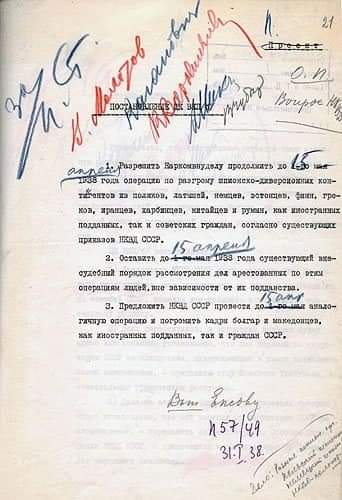 П.
21
Проект
за
И. Ст.
В. Молотов
Каганович
К Ворошилов
О. П.
Вопрос НКВД
ПОСТАНОВЛЕНИЕ ЦК ВКП/б
1. Разрешить Наркомвнуделу продолжить до 1-го мая 15
апреля
1938 года операцию по разгрому шпионско-диверсионных кон-
тингентов из поляков, латышей, немцев, эстонцев, финн, гре-
ков, иранцев, харбинцев, китайцев и румын, как иностранных
подданных, так и советских граждан, согласно существующих
приказов НКВД СССР.
15 апреля
2. Оставить до 1-го мая 1938 года существующий вне-
судебный порядок рассмотрения дел арестованных по этим
операциям людей, вне зависимости от их подданства.
15 апр
3. Предложить НКВД СССР провести до 1-го мая анало-
гичную операцию и погромить кадры болгар и македонцев,
как иностранных подданных, так и граждан СССР.
Вып Ежову
П57/49
31.I.38.